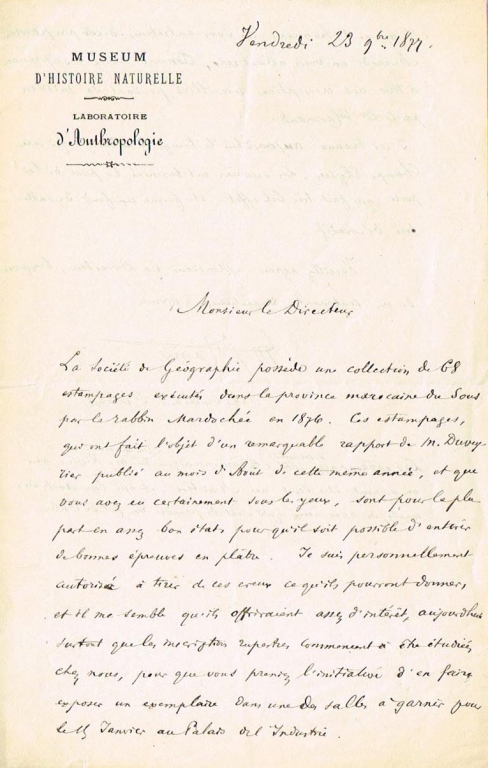 MUSEUM
D'HISTOIRE NATURELLE
LABORATOIRE
d'Anthropologie
Vendredi 23 9bre 1877.
Monsieur le Directeur
La Société de Géographie possède une collection de 68
estampages exécutés dans la province marocaine du Sous
par le rabbin Mardochée en 1876. Ces estampages,
qui ont fait l'objet d'un remarquable rapport de M. Duvey-
rier publié au mois d'Août de cette même année, et que
vous avez eu certainement sous les yeux, sont pour la plu
part en assez bon état pour qu'il soit possible d'en tirer
de bonnes épreuves en plâtre. Je suis personnellement
autorisé à tirer de ces creux ce qu'ils pourront donner,
et il me semble qu'ils offriraient assez d'intérêt, aujourd'hui
surtout que les inscriptions rupestres commencent à être étudiées
chez nous, pour que vous preniez l'initiative d'en faire
exposer un exemplaire dans une des salles à garnir pour
le Janvier au Palais de l'Industrie.